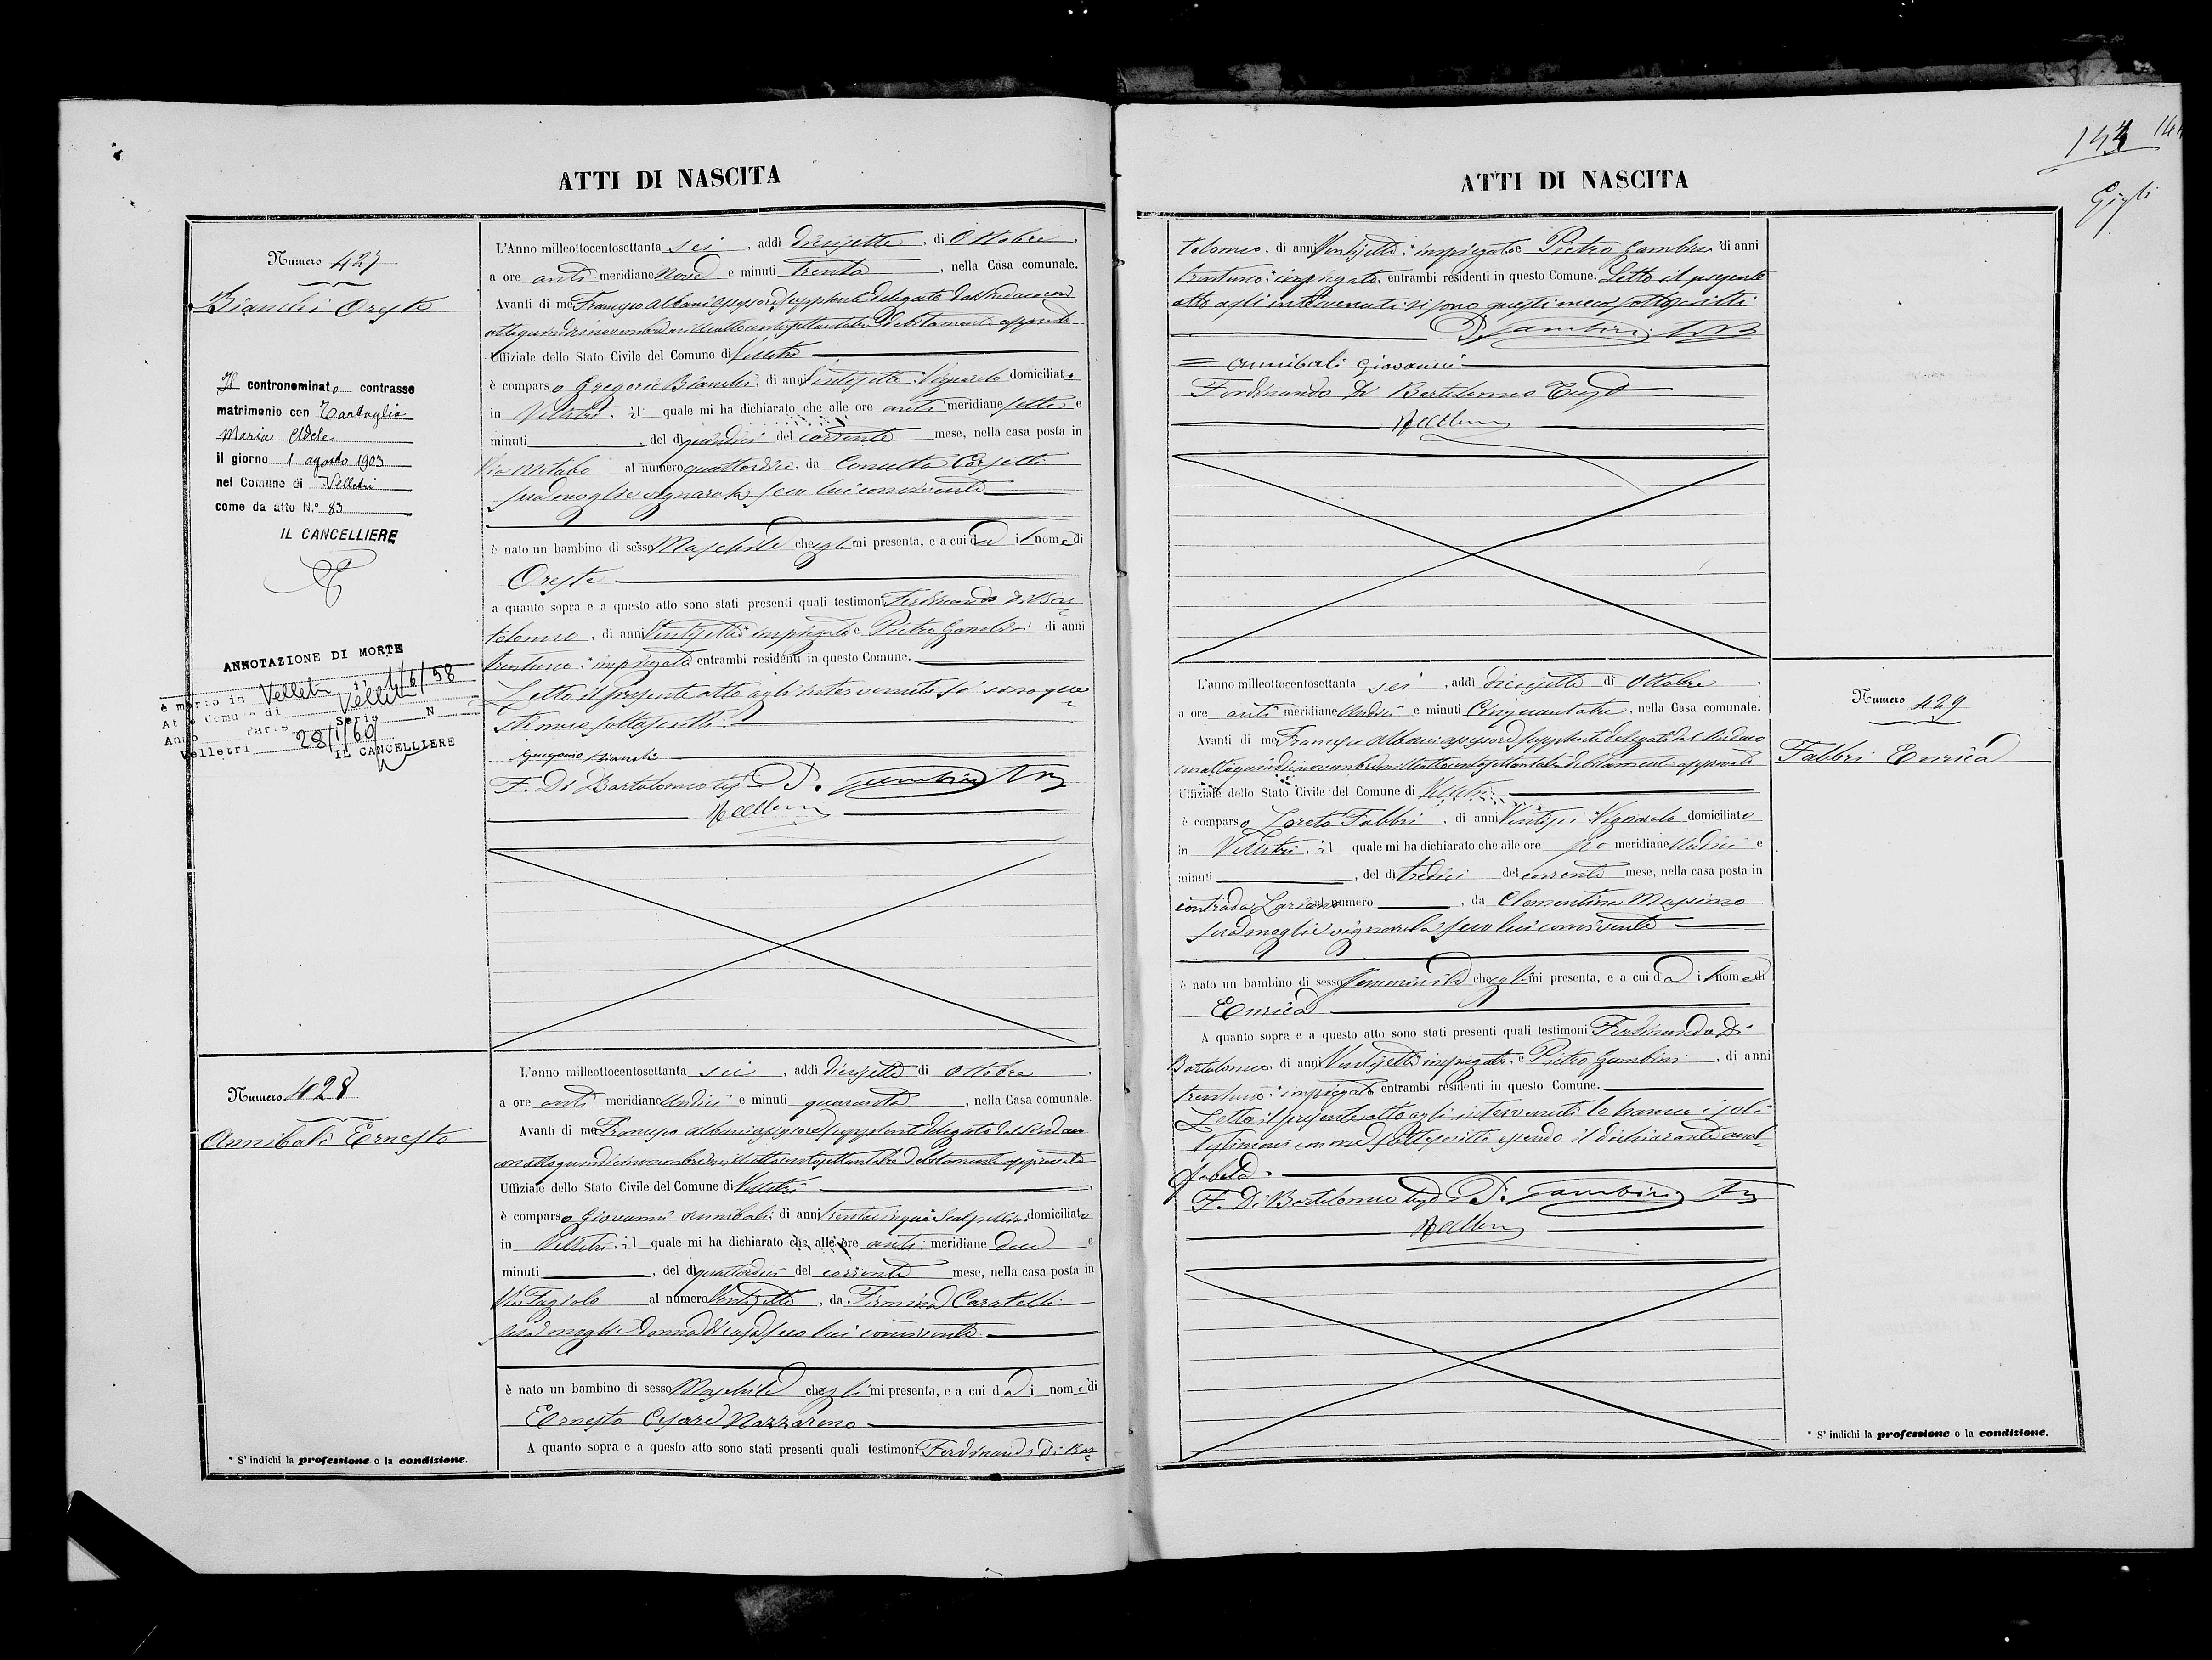 ATTI DI NASCITA
Numero 427
Bianchi Oreste
Il contronominato contrasse
matrimonio con Tartaglia
Maria Adele
il giorno 1 agosto 1903
nel Comune di Velletri
come da atto N.º 83
IL CANCELLIERE
ANNOTAZIONE DI MORTE
è morto in Velletri il 1/6/58
Atto Comune di Velletri
Anno Parte Serie N
Velletri 28/1/60
IL CANCELLIERE
L'Anno milleottocentosettanta sei, addì diecisette, di Ottobre,
a ore anti meridiane Nove e minuti trenta, nella Casa comunale.
Avanti di me Francesco Albani assessore supplente delegato dal Sindaco con
atto quindici novembre milleottocentosettantatre debitamente approvato
Uffiziale dello Stato Civile del Comune di Velletri
è comparso Gregorio Bianchi, di anni Ventisette Vignarolo domiciliato
in Velletri, il quale mi ha dichiarato che alle ore anti meridiane sette e
minuti , del dì quindici del corrente mese, nella casa posta in
Via Metabo al numero quattordici, da Consulta Corsetti
sua moglie vignarola seco lui convivente
è nato un bambino di sesso Maschile che egli mi presenta, e a cui dà il nome di
Oreste
a quanto sopra e a questo atto sono stati presenti quali testimoni Ferdinando Di Bar
tolomeo, di anni Ventisette impiegato e Pietro Gambini di anni
trentuno impiegato entrambi residenti in questo Comune.
Letto il presente atto agli intervenuti si sono que
sti meco sottoscritti
Gregorio Bianchi
F. Di Bartolomeo teste P. Gambini
Numero 428
Annibali Ernesto
L'anno milleottocentosettanta sei, addì diecisette di Ottobre,
a ore anti meridiane Undici e minuti quaranta, nella Casa comunale.
Avanti di me Francesco Albani assessore supplente delegato dal Sindaco
con atto quindici novembre milleottocentosettantatre debitamente approvato
Uffiziale dello Stato Civile del Comune di Velletri
è comparso Giovanni Annibali, di anni trentacinque Scalpellino domiciliato
in Velletri, il quale mi ha dichiarato che alle ore anti meridiane due e
minuti , del dì quattordici del corrente mese, nella casa posta in
Via Fagiolo al numero Ventisette, da Firmina Caratelli
sua moglie Donna di casa seco lui convivente
è nato un bambino di sesso Maschile che egli mi presenta, e a cui dà i nomi di
Ernesto Cesare Nazzareno
A quanto sopra e a questo atto sono stati presenti quali testimoni Ferdinando Di Bar
* S' indichi la professione o la condizione.
ATTI DI NASCITA
144
Gigli
tolomeo, di anni Ventisette impiegato e Pietro Gambini di anni
trentuno impiegato, entrambi residenti in questo Comune. Letto il presente
atto agli intervenuti si sono questi meco sottoscritti
P. Gambini
Annibali Giovanni
Ferdinando Di Bartolomeo Teste
Numero 429
Fabbri Enrica
L'anno milleottocentosettanta sei, addì diecisette di Ottobre,
a ore anti meridiane Undici e minuti Cinquantatre, nella Casa comunale.
Avanti di me Francesco Albani assessore supplente delegato dal Sindaco
con atto quindici novembre milleottocentosettantatre debitamente approvato
Uffiziale dello Stato Civile del Comune di Velletri
è comparso Loreto Fabbri, di anni Ventisei Vignarolo domiciliato
in Velletri, il quale mi ha dichiarato che alle ore po meridiane Undici e
minuti , del dì tredici del corrente mese, nella casa posta in
contrada Lariano al numero , da Clementina Massimo
sua moglie vignarola seco lui convivente
è nato un bambino di sesso femminile che egli mi presenta, e a cui dà il nome di
Enrica
A quanto sopra e a questo atto sono stati presenti quali testimoni Ferdinando Di
Bartolomeo, di anni Ventisette impiegato, e Pietro Gambini, di anni
trentuno impiegato entrambi residenti in questo Comune.
Letto il presente atto agli intervenuti lo hanno i soli
testimoni con me sottoscritto essendo il dichiarante anal
fabeta
F. Di Bartolomeo teste P. Gambini
* S' indichi la professione o la condizione.